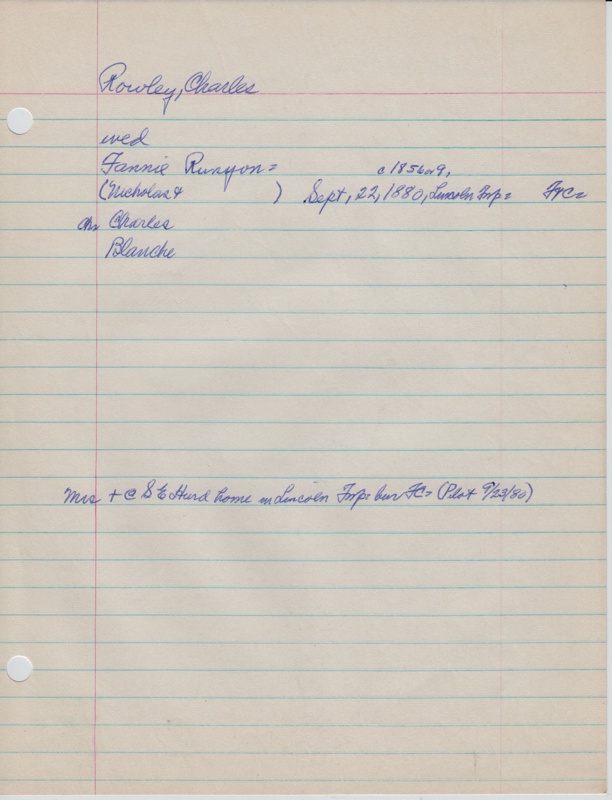 Rowley, Charles
wed
Fannie Runyon= c 1858or9,
(Nicholas & ) Sept, 22, 1880, Lincoln Twp= FC=
ch Charles
Blanche
Mrs + @ S E Hurd home in Lincoln Twp= bur FC= (Plat 9/23/80)